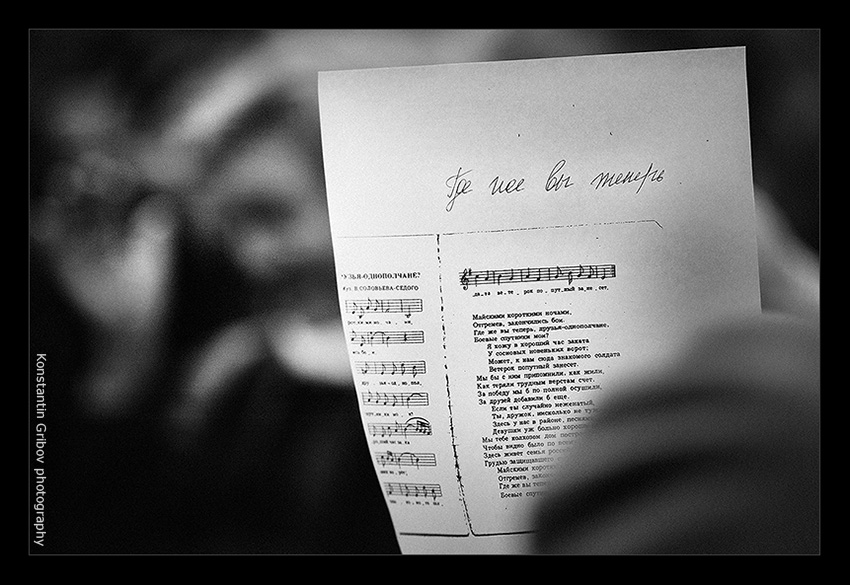 Где же вы теперь
УЗЬЯ-ОДНОПОЛЧАНЕ?
В СОЛОВЬЕВА-СЕДОГО
Майскими короткими ночами,
Отгремев, закончились бои.
Где же вы теперь, друзья-однополчане,
Боевые спутники мои?
Я хожу в хороший час заката
У сосновых новеньких ворот;
Может, к нам сюда знакомого солдата
Ветерок попутный занесет.
Мы бы с ним припомнили, как жили,
Как теряли трудным верстам счет.
За победу мы б по полной осушили,
За друзей добавили б еще.
Если ты случайно неженатый,
Ты, дружок, нисколько не
Здесь у нас в районе,
Девушки уж больно
Мы тебе колхозом дом
Чтобы видно было по
Здесь живет семья
Грудью защищавшего
Майскими
Отгремев,
Где же вы
Боевые
Konstantin Gribov photography